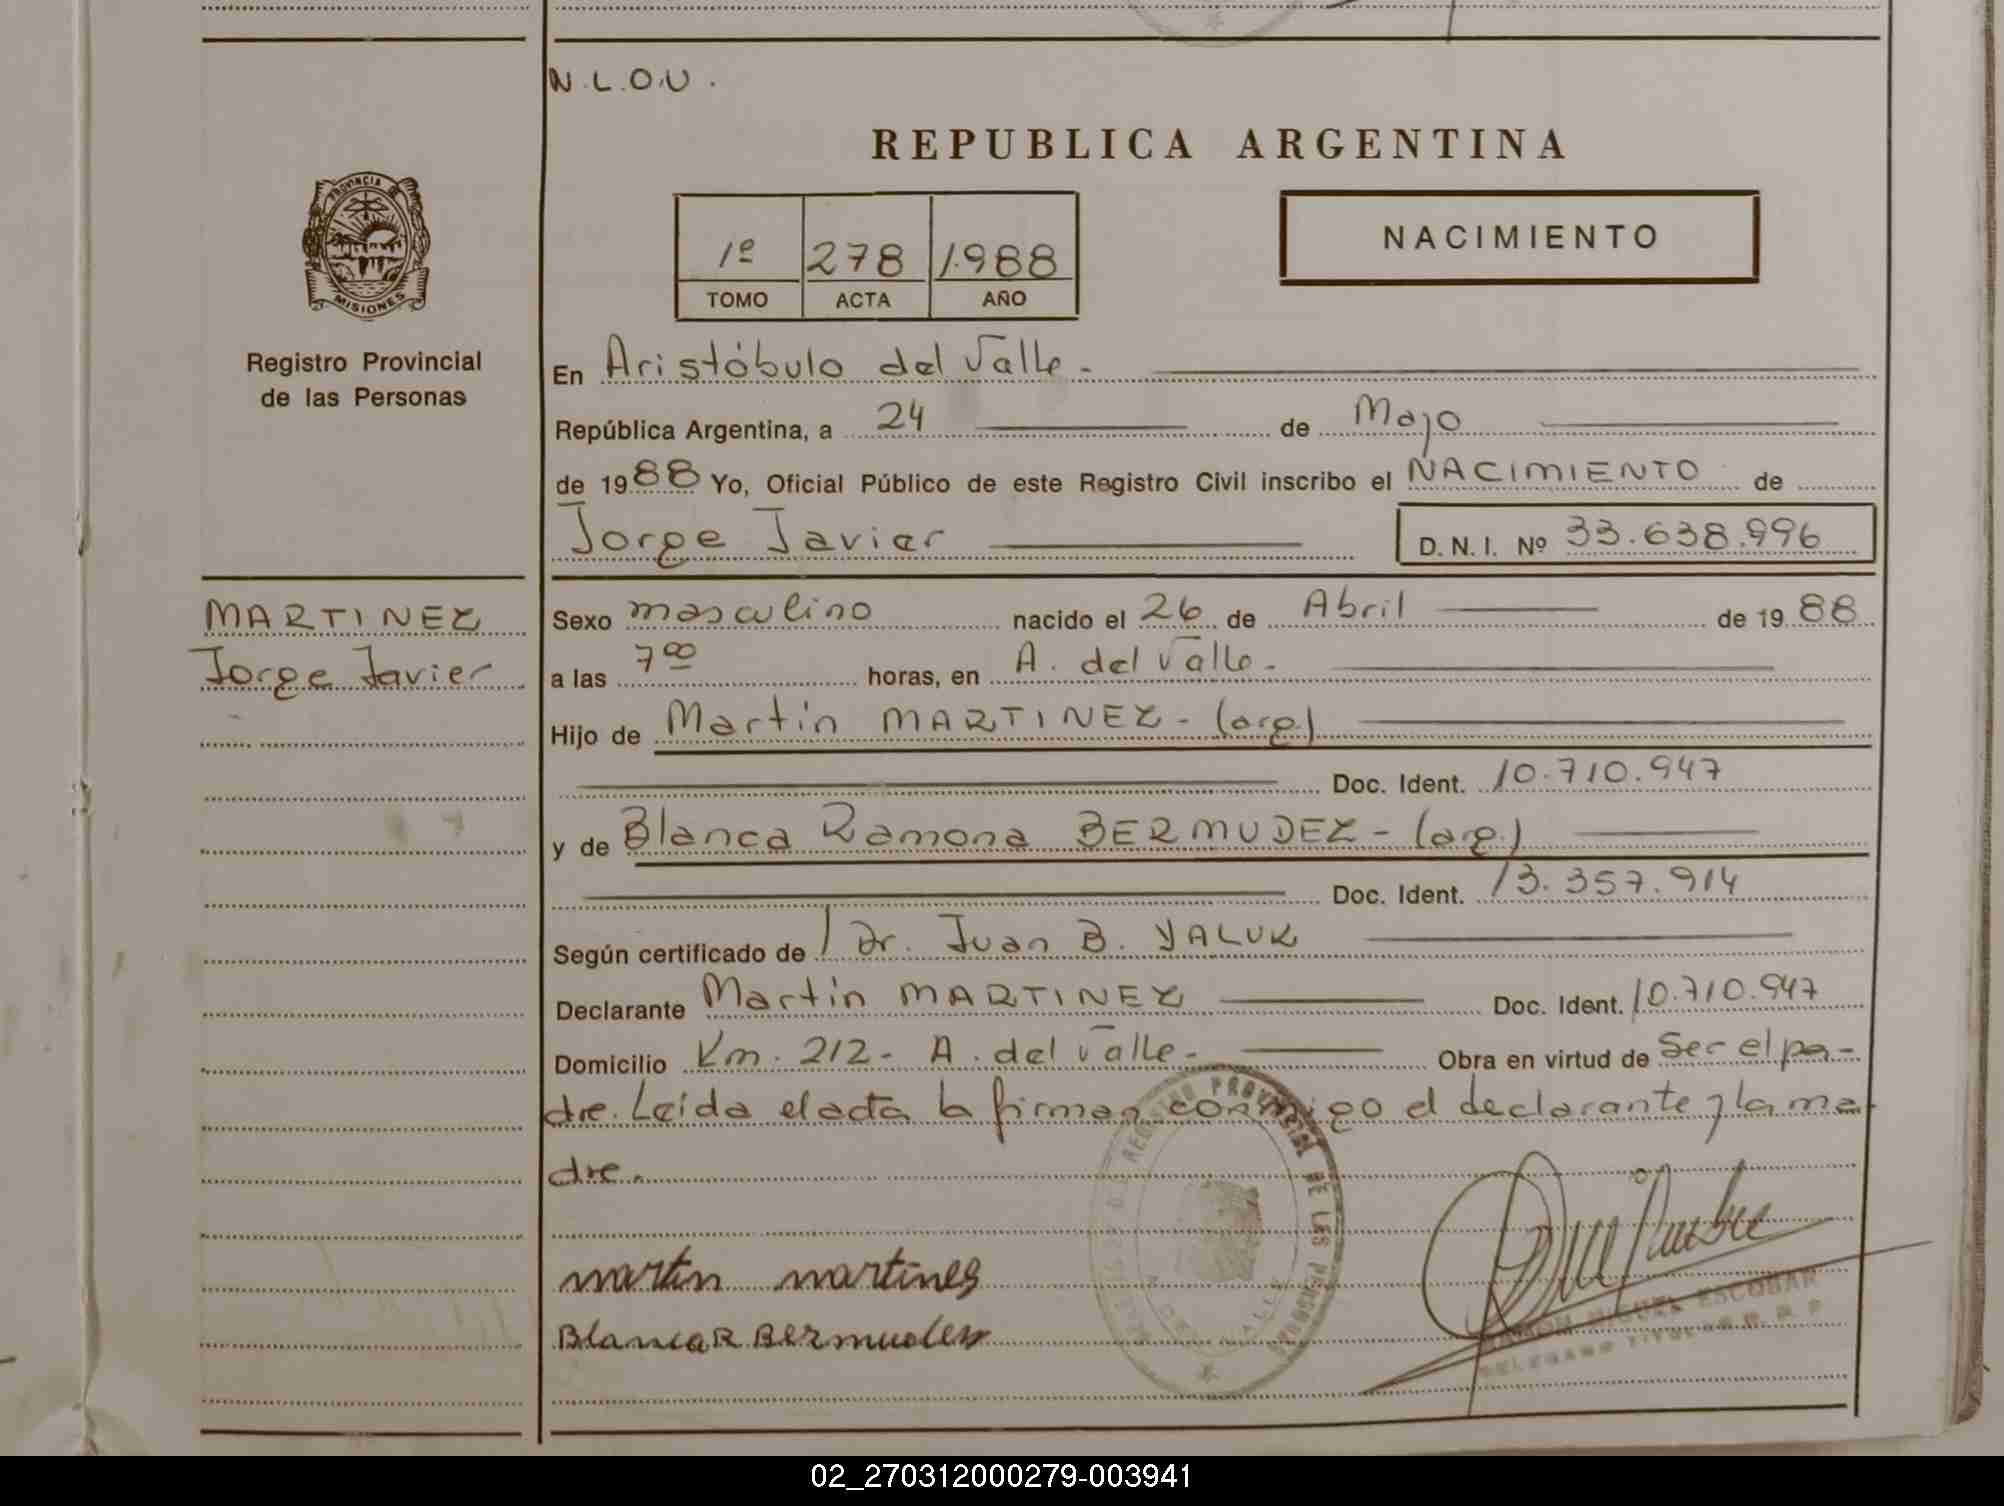 N.L.O.U.
REPUBLICA ARGENTINA
PROVINCIA DE
MISIONES
Registro Provincial
de las Personas
1º 278 1988
TOMO ACTA AÑO
NACIMIENTO
En Aristóbulo del Valle -
República Argentina, a 24 de Mayo
de 1988 Yo, Oficial Público de este Registro Civil inscribo el NACIMIENTO de
Jorge Javier D.N.I. Nº 33.638.996
MARTINEZ
Jorge Javier
Sexo masculino nacido el 26 de Abril de 1988
a las 7 00 horas, en A. del Valle -
Hijo de Martín MARTINEZ - (arg)
Doc. Ident. 10.710.947
y de Blanca Ramona BERMUDEZ - (arg.)
Doc. Ident. 13.357.914
Según certificado de Dr. Juan B. YALUK
Declarante Martín MARTINEZ Doc. Ident. 10.710.947
Domicilio Km. 212 - A. del Valle - Obra en virtud de Ser el pa-
dre. Leída el acta la firman conmigo el declarante y la ma-
dre.
REGISTRO PROVINCIAL DE LAS PERSONAS
martin martines
Blanca R Bermudez
RAMON MIGUEL ESCOBAR
DELEGADO TITULAR R. P.
02_270312000279-003941